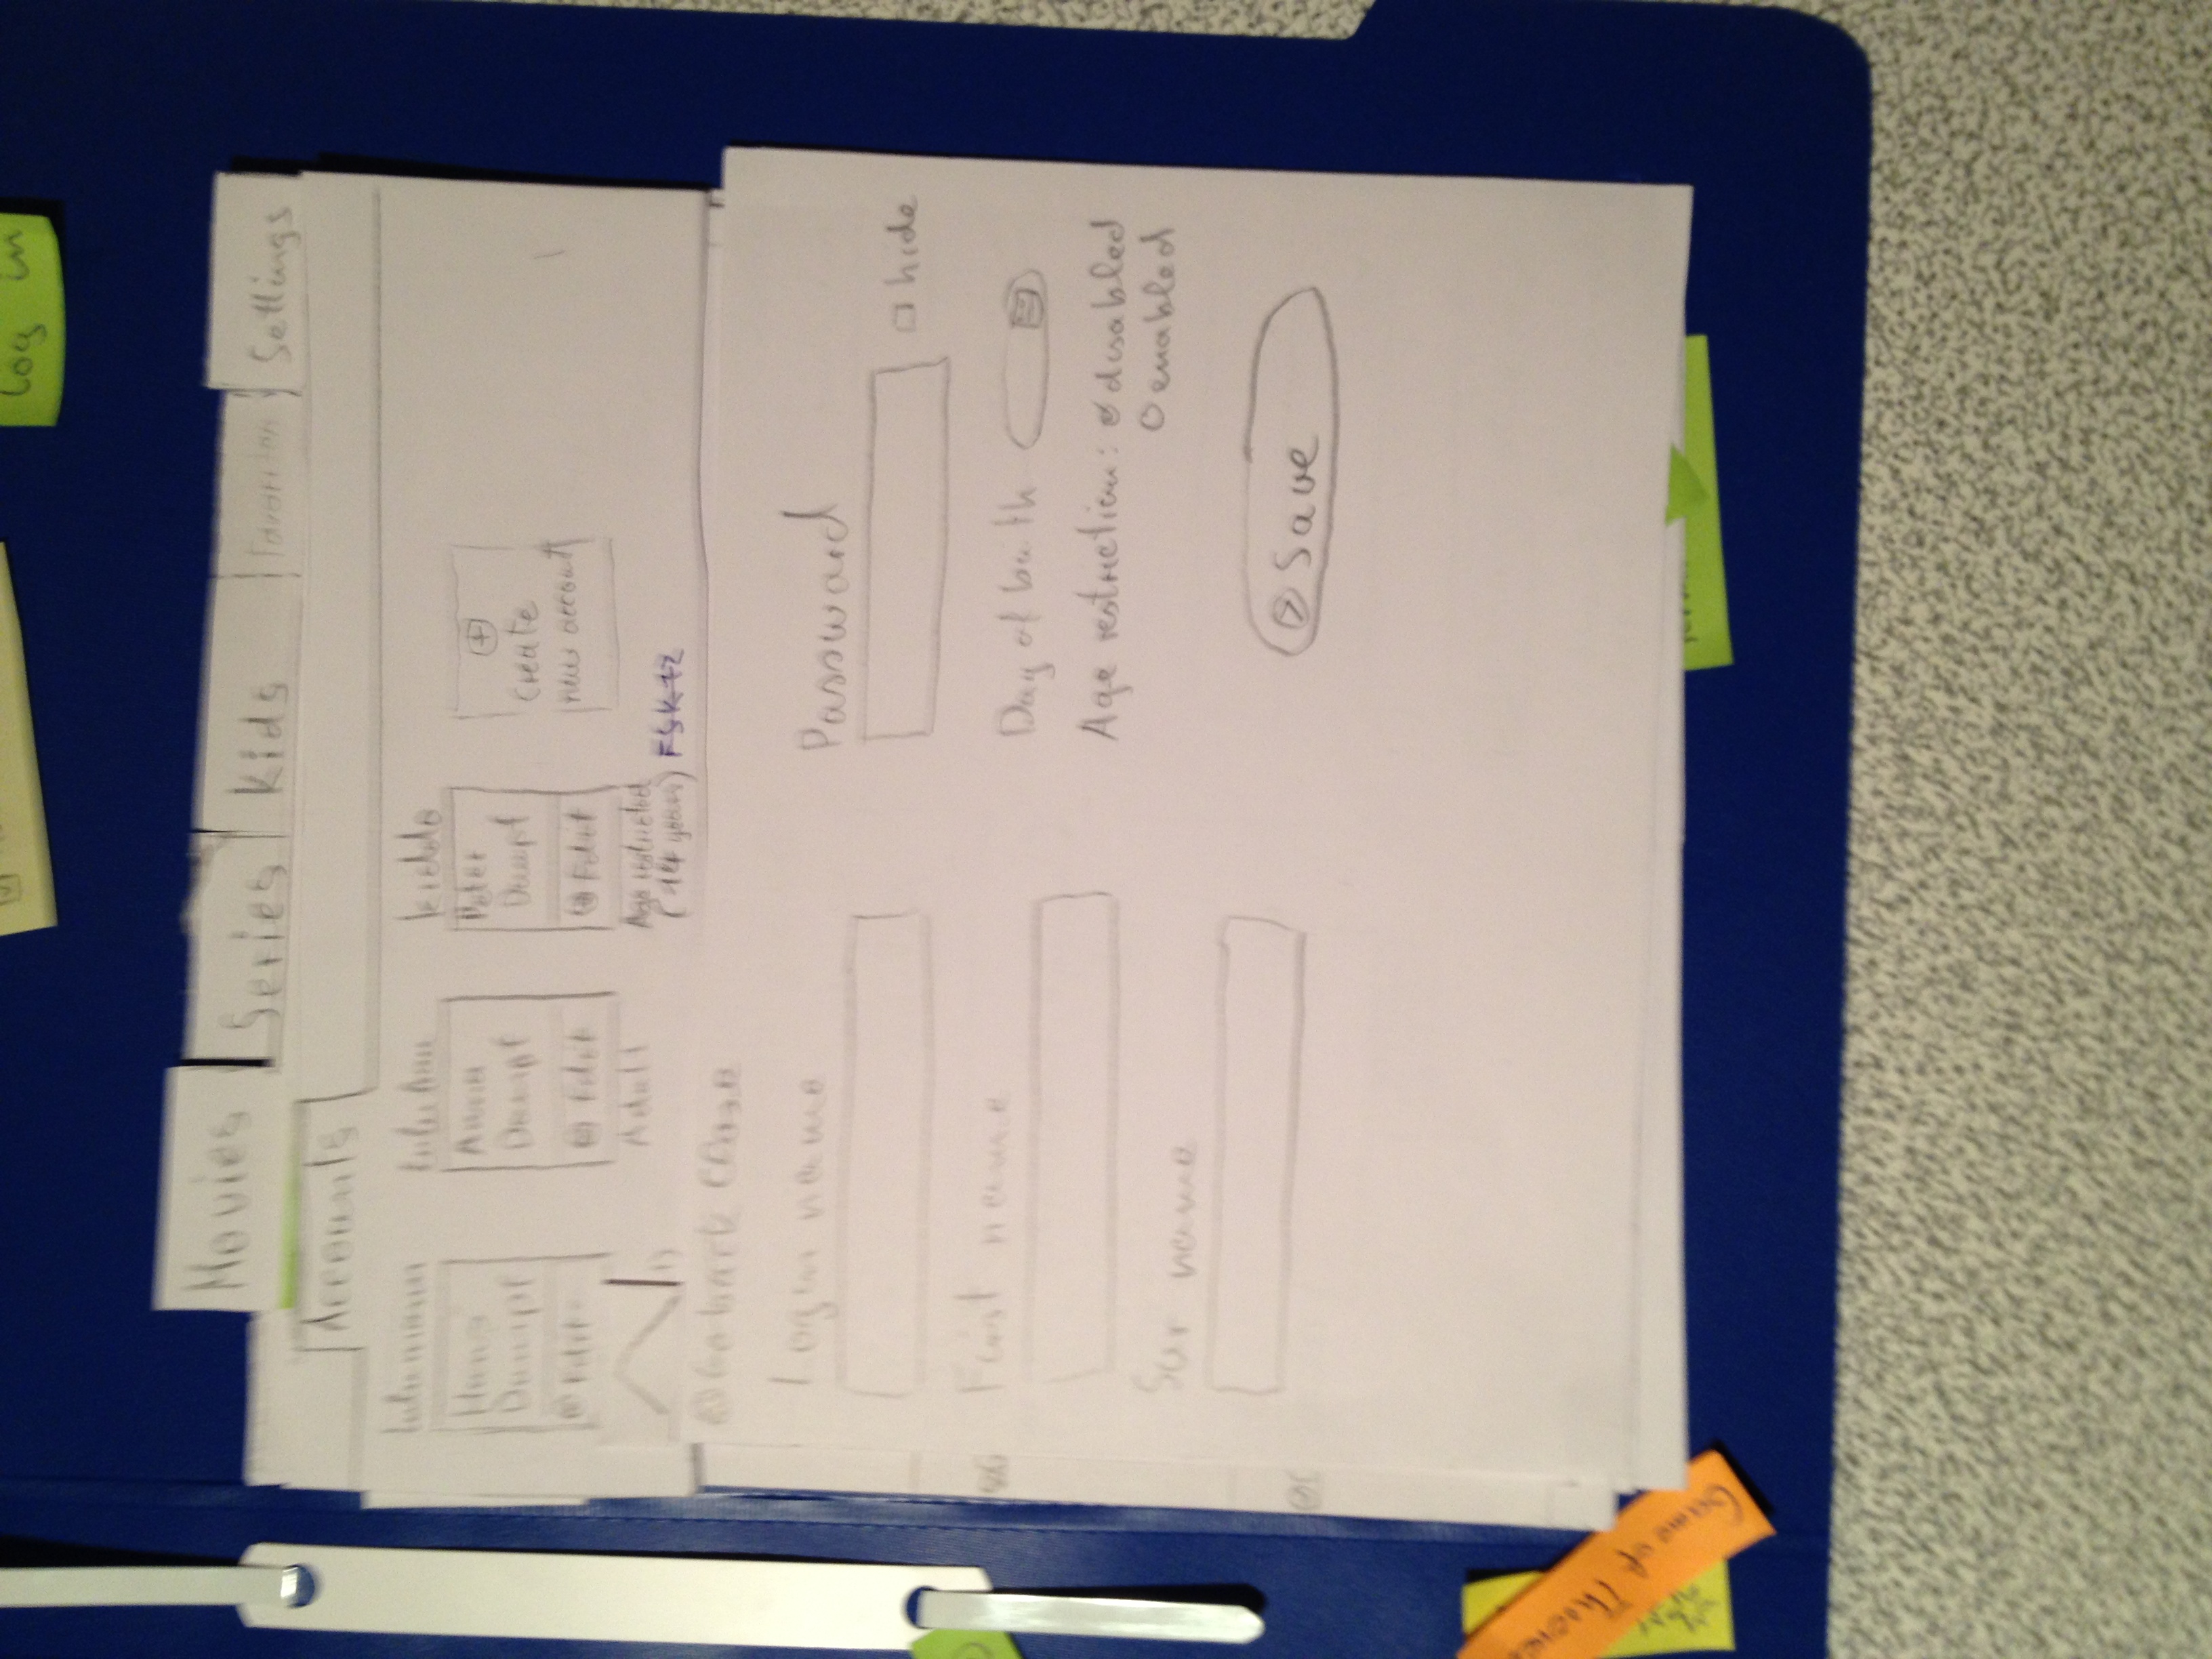 Log in
Movies
Series
Kids
Favoriten
Settings
Accounts
Kiddo
Dumpf
Edit
Anna
Dumpf
Edit
Adult
Peter
Dumpf
Edit
Age restricted
(14 years) FSK 12
Create
new account
Go back Close
Login name
Password
hide
First name
Day of birth
Age restriction: disabled
enabled
Sur name
Save
Game of Thrones